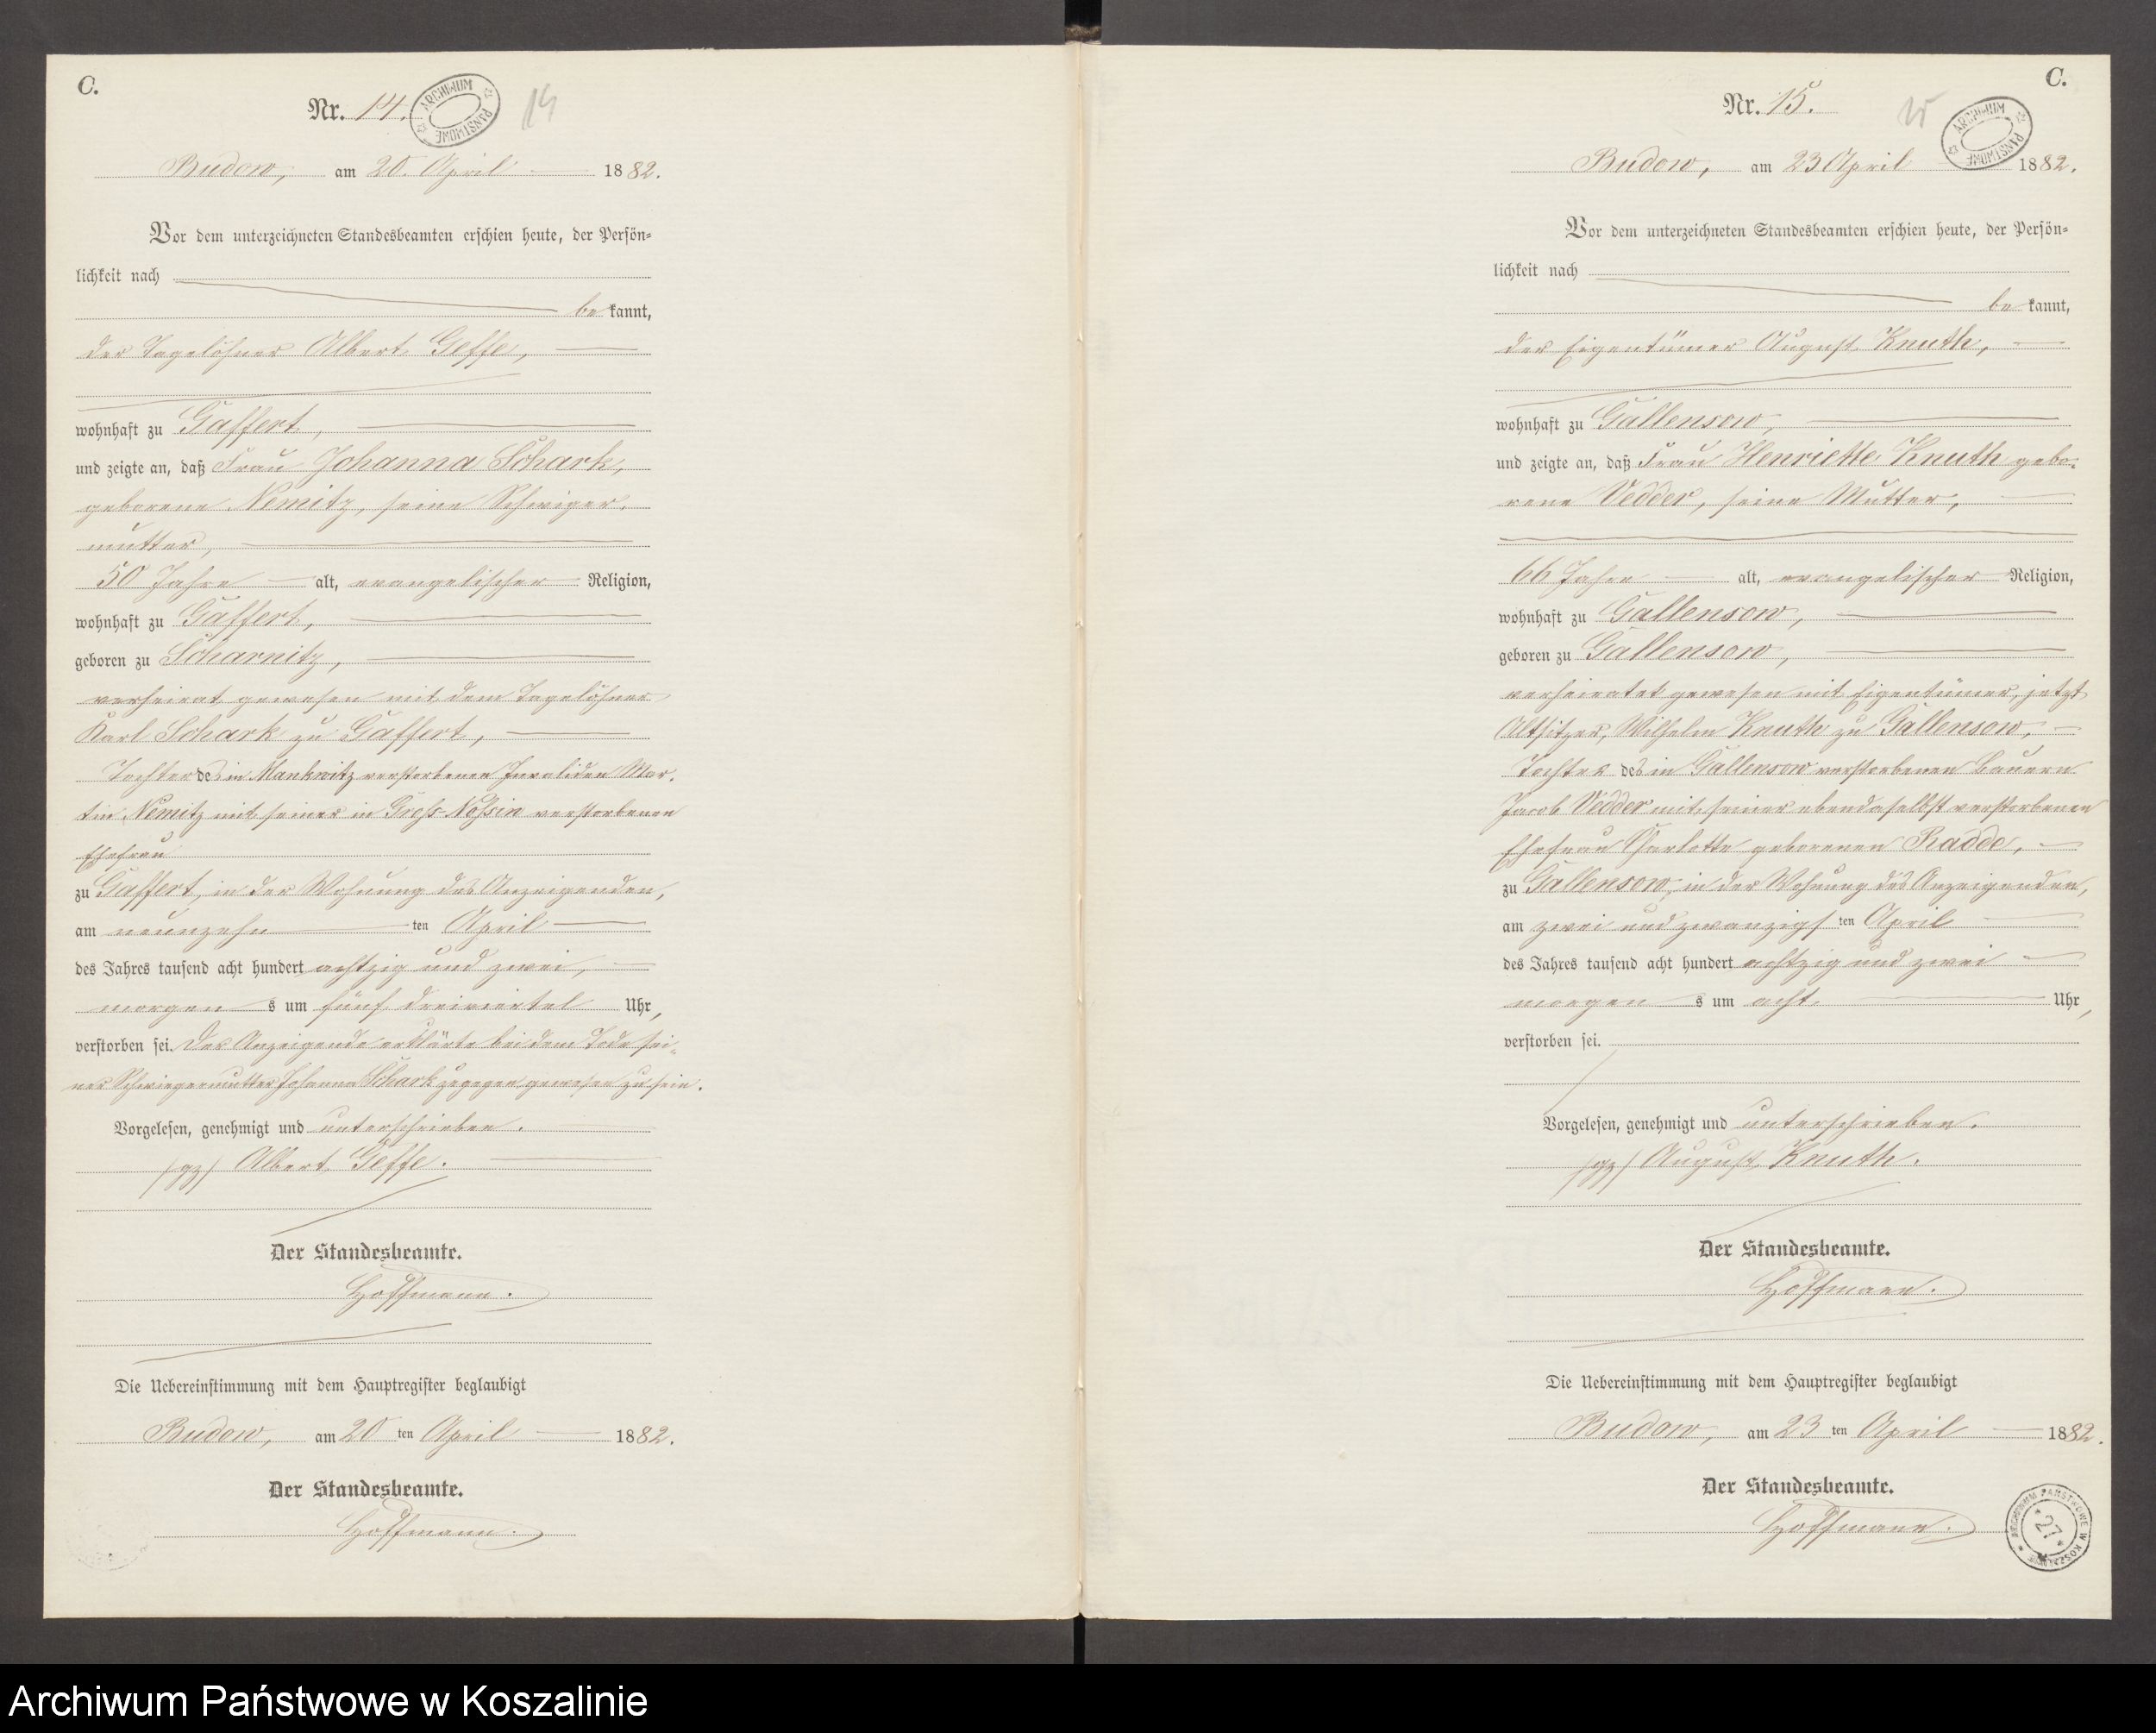 C.
Nr. 14.
ARCHIWUM PAŃSTWOWE
14
Budow, am 20. April 1882.
Vor dem unterzeichneten Standesbeamten erschien heute, der Persön-
lichkeit nach
bekannt,
der Tagelöhner Albert Geffe,
wohnhaft zu Gaffert,
und zeigte an, daß Frau Johanna Schark,
geborene Nemitz, seine Schwieger-
mutter,
50 Jahre alt, evangelischer Religion,
wohnhaft zu Gaffert,
geboren zu Scharnitz,
verheirat gewesen mit dem Tagelöhner
Karl Schark zu Gaffert,
Tochter des in Mankwitz verstorbenen Invaliden Mar-
tin Nemitz mit seiner in Gross-Nossin verstorbenen
Ehefrau
zu Gaffert, in der Wohnung des Anzeigenden,
am neunzehn ten April
des Jahres tausend acht hundert achtzig und zwei,
morgens um fünf dreiviertel Uhr,
verstorben sei. Der Anzeigende erklärte bei dem Tode sei-
ner Schwiegermutter Johanna Schark zugegen gewesen zu sein.
Vorgelesen, genehmigt und unterschrieben.
(gz) Albert Geffe.
Der Standesbeamte.
Hoffmann.
Die Uebereinstimmung mit dem Hauptregister beglaubigt
Budow, am 20 ten April 1882.
Der Standesbeamte.
Hoffmann.
C.
Nr. 15.
15
ARCHIWUM PAŃSTWOWE
Budow, am 23 April 1882.
Vor dem unterzeichneten Standesbeamten erschien heute, der Persön-
lichkeit nach
bekannt,
der Eigentümer August Knuth,
wohnhaft zu Gallensow,
und zeigte an, daß Frau Henriette Knuth gebo-
rene Vedder, seine Mutter,
66 Jahre alt, evangelischer Religion,
wohnhaft zu Gallensow,
geboren zu Gallensow,
verheiratet gewesen mit Eigentümer, jetzt
Altsitzer, Wilhelm Knuth zu Gallensow,
Tochter des in Gallensow verstorbenen Bauern
Jacob Vedder mit seiner ebendaselbst verstorbenen
Ehefrau Charlotte geborenen Radde,
zu Gallensow, in der Wohnung des Anzeigenden,
am zwei und zwanzigsten April
des Jahres tausend acht hundert achtzig und zwei
morgens um acht Uhr,
verstorben sei.
Vorgelesen, genehmigt und unterschrieben.
(gz) August Knuth.
Der Standesbeamte.
Hoffmann.
Die Uebereinstimmung mit dem Hauptregister beglaubigt
Budow, am 23 ten April 1882.
Der Standesbeamte.
Hoffmann.
ARCHIWUM PAŃSTWOWE W KOSZALINIE
27
Archiwum Państwowe w Koszalinie